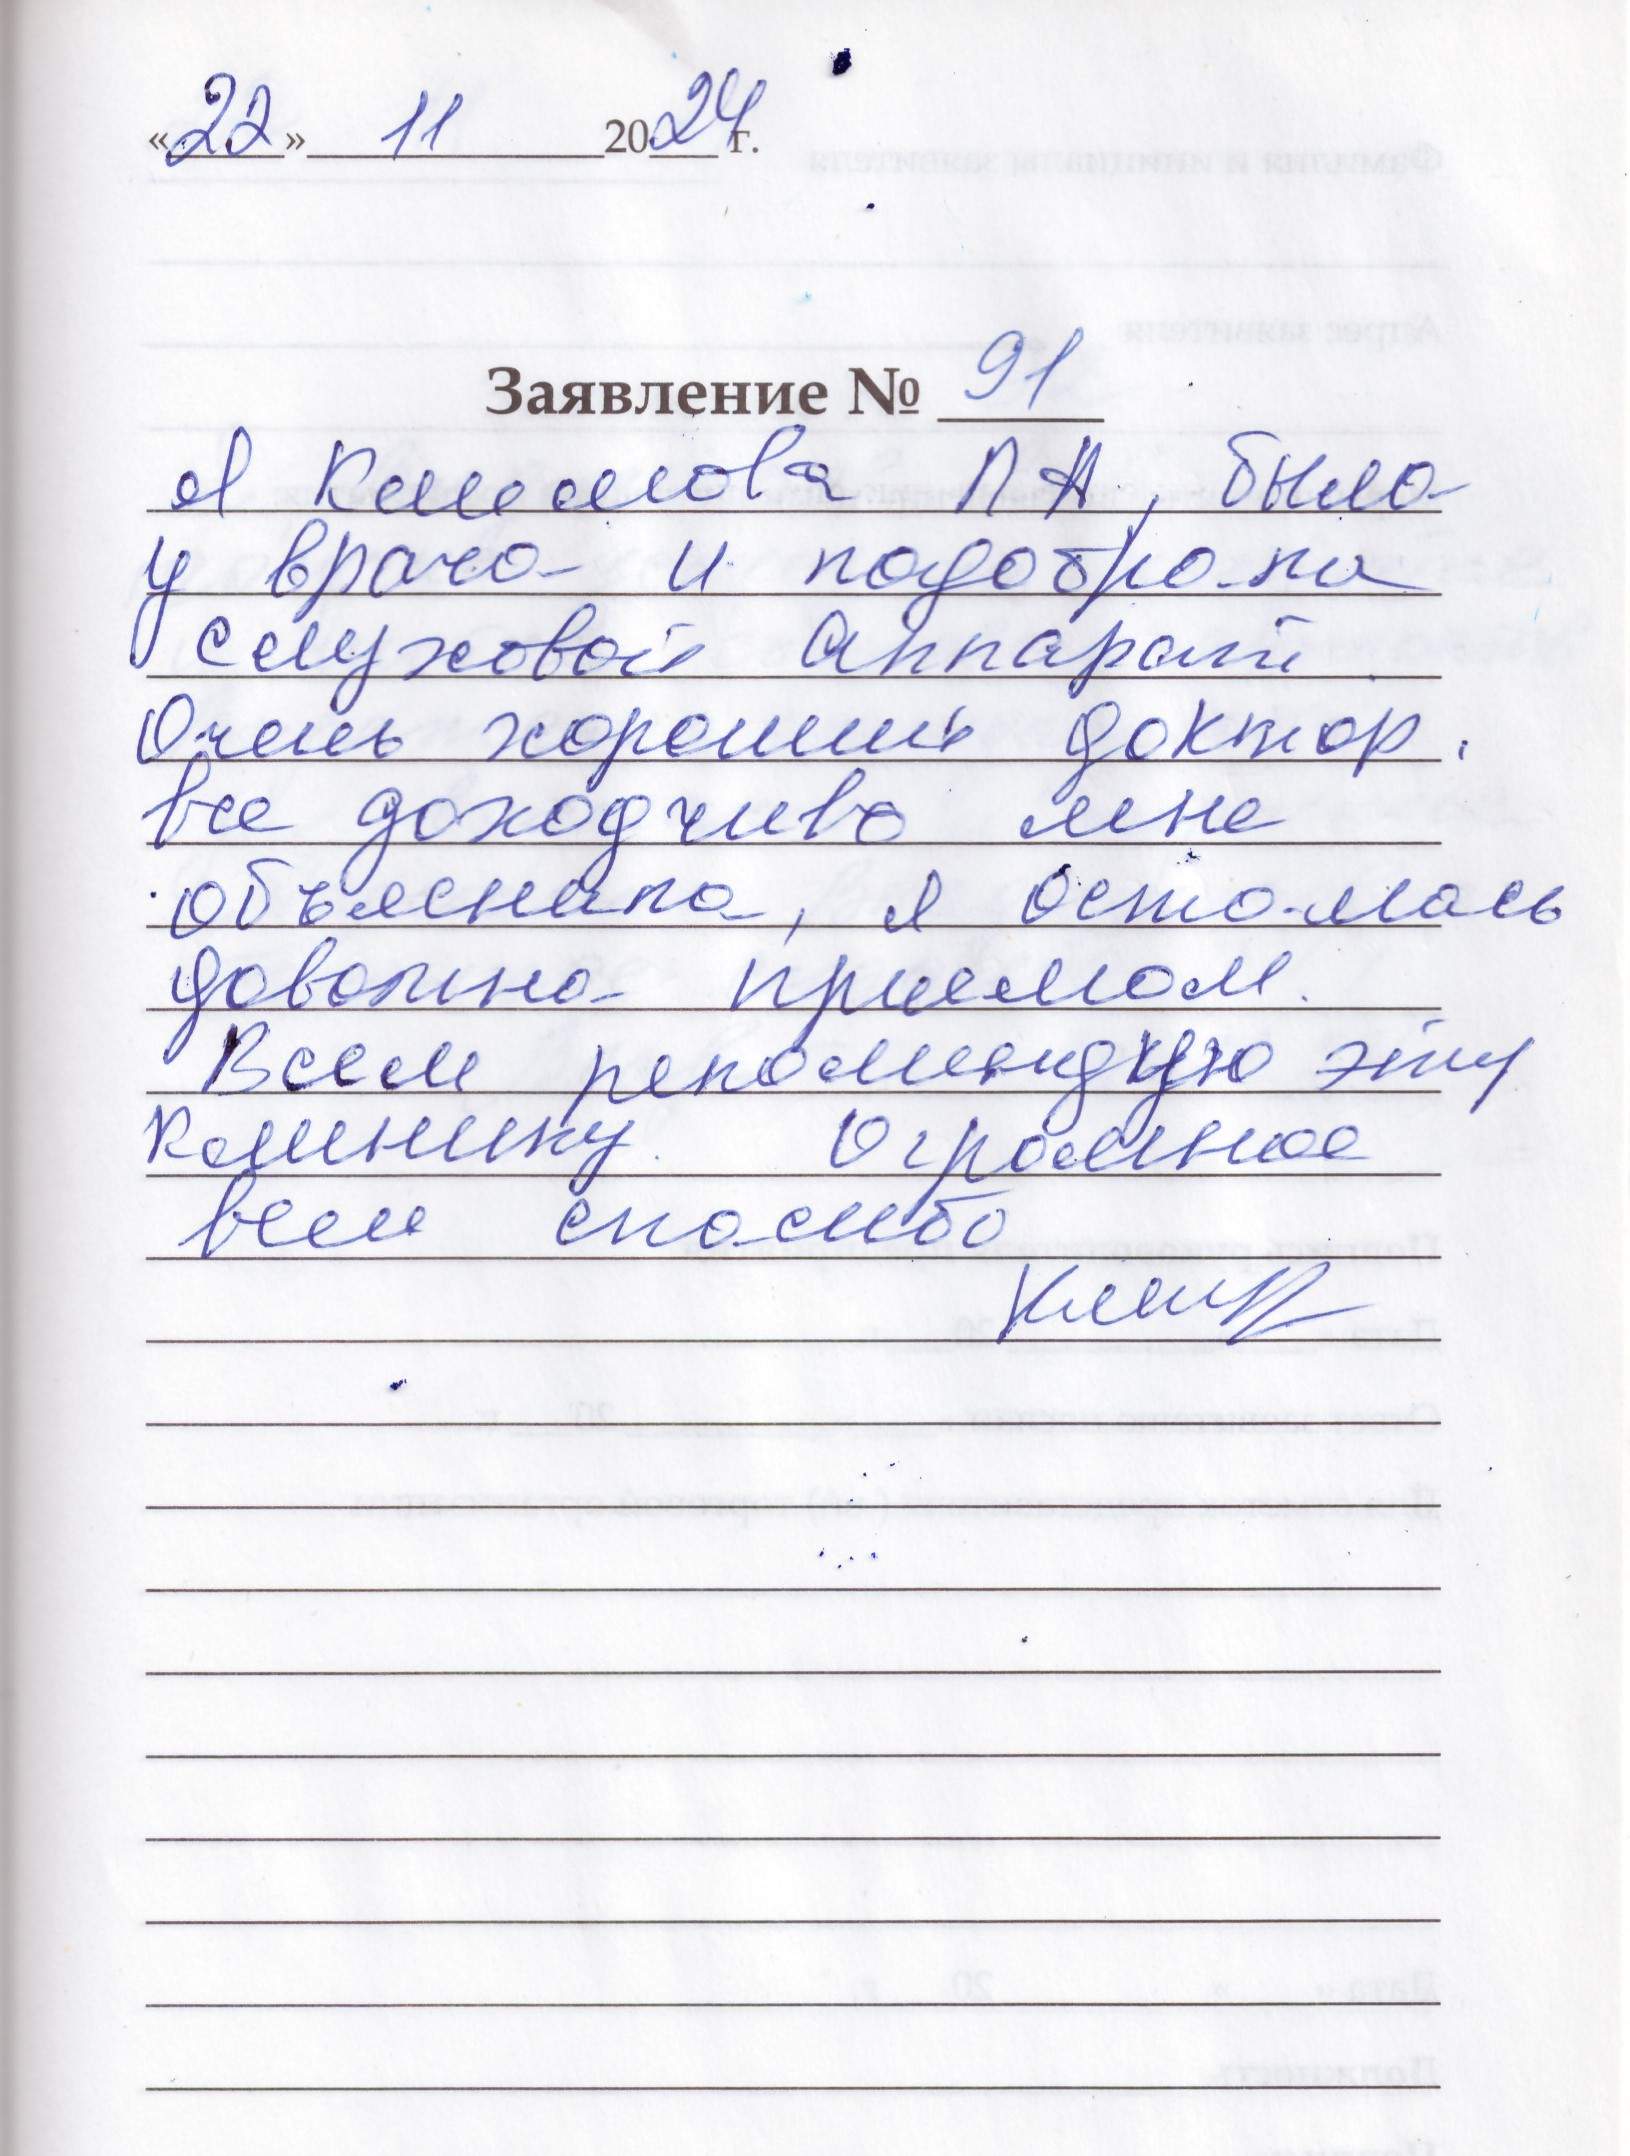 «22» 11 2024 г.
Заявление № 91
Я Климова Л А, была
у врача и подобрала
слуховой аппарат
Очень хороший доктор.
все доходчиво мне
объяснила, я осталась
довольна приемом.
Всем рекомендую эту
клинику. Огромное
всем спасибо